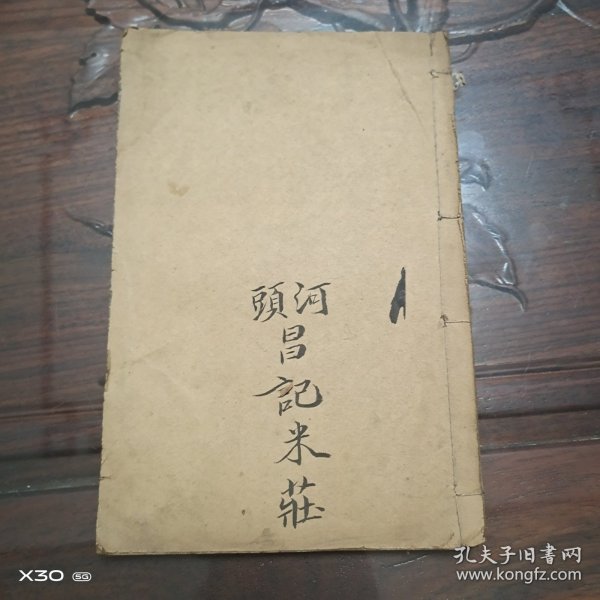 河頭
昌記米莊
孔夫子旧书网
www.kongfz.com
X30 5G